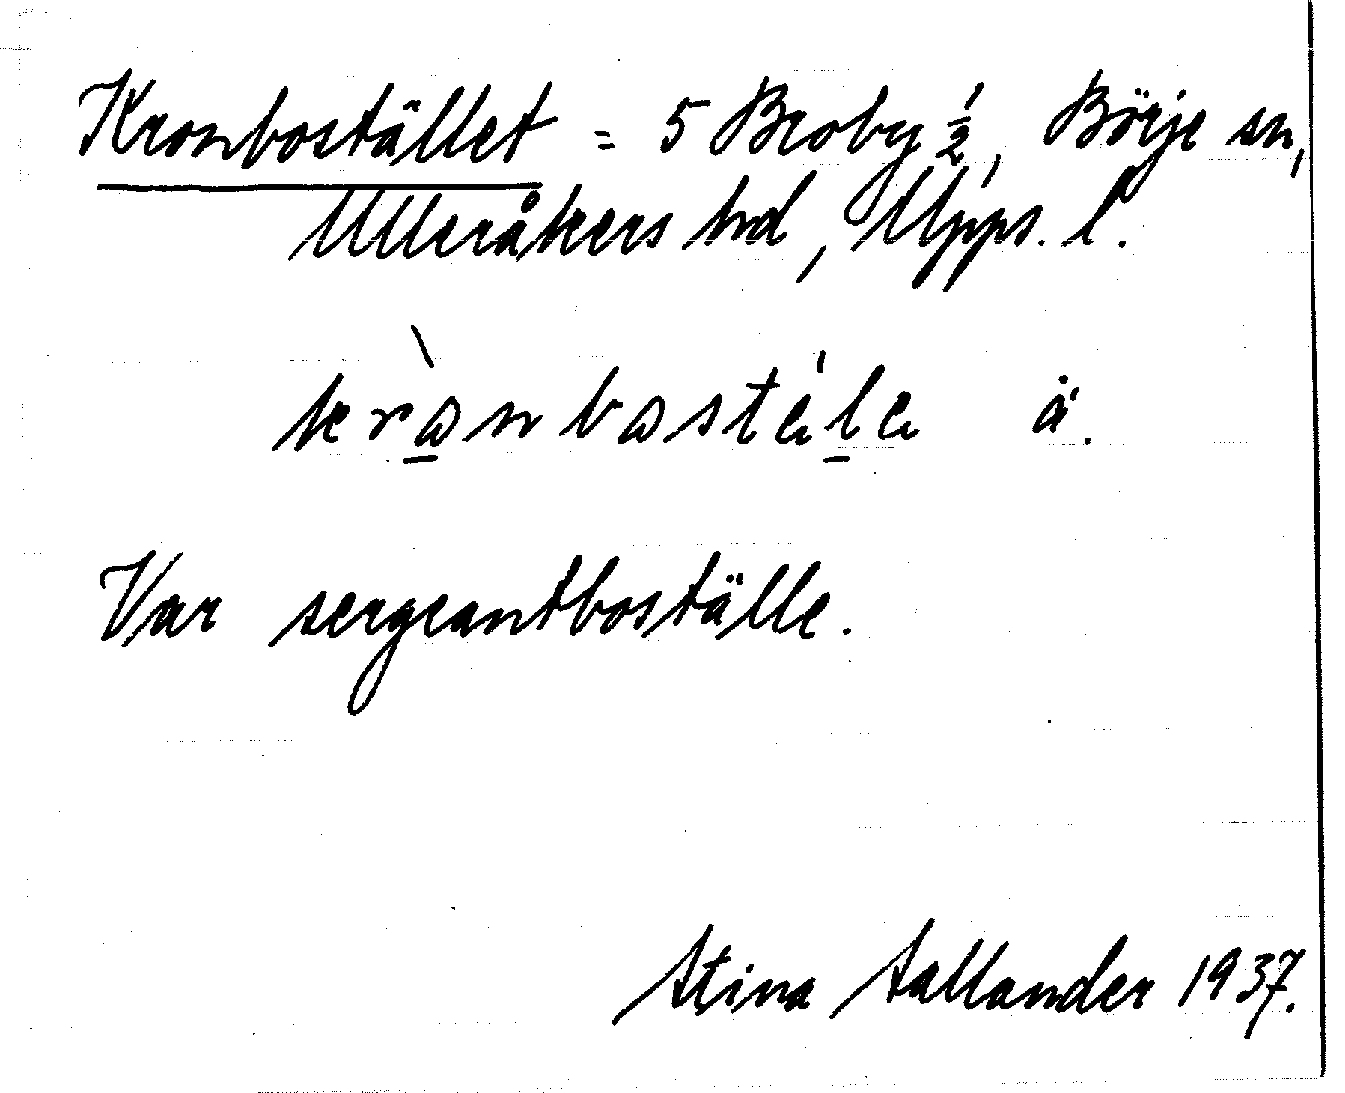 Kronbostället = 5 Broby 1/2, Börje sn,
Ulleråkers hd, Upps. l.
krò̱nbosté́ḻe ä.
Var sergeantboställe.
Stina Sallander 1937.